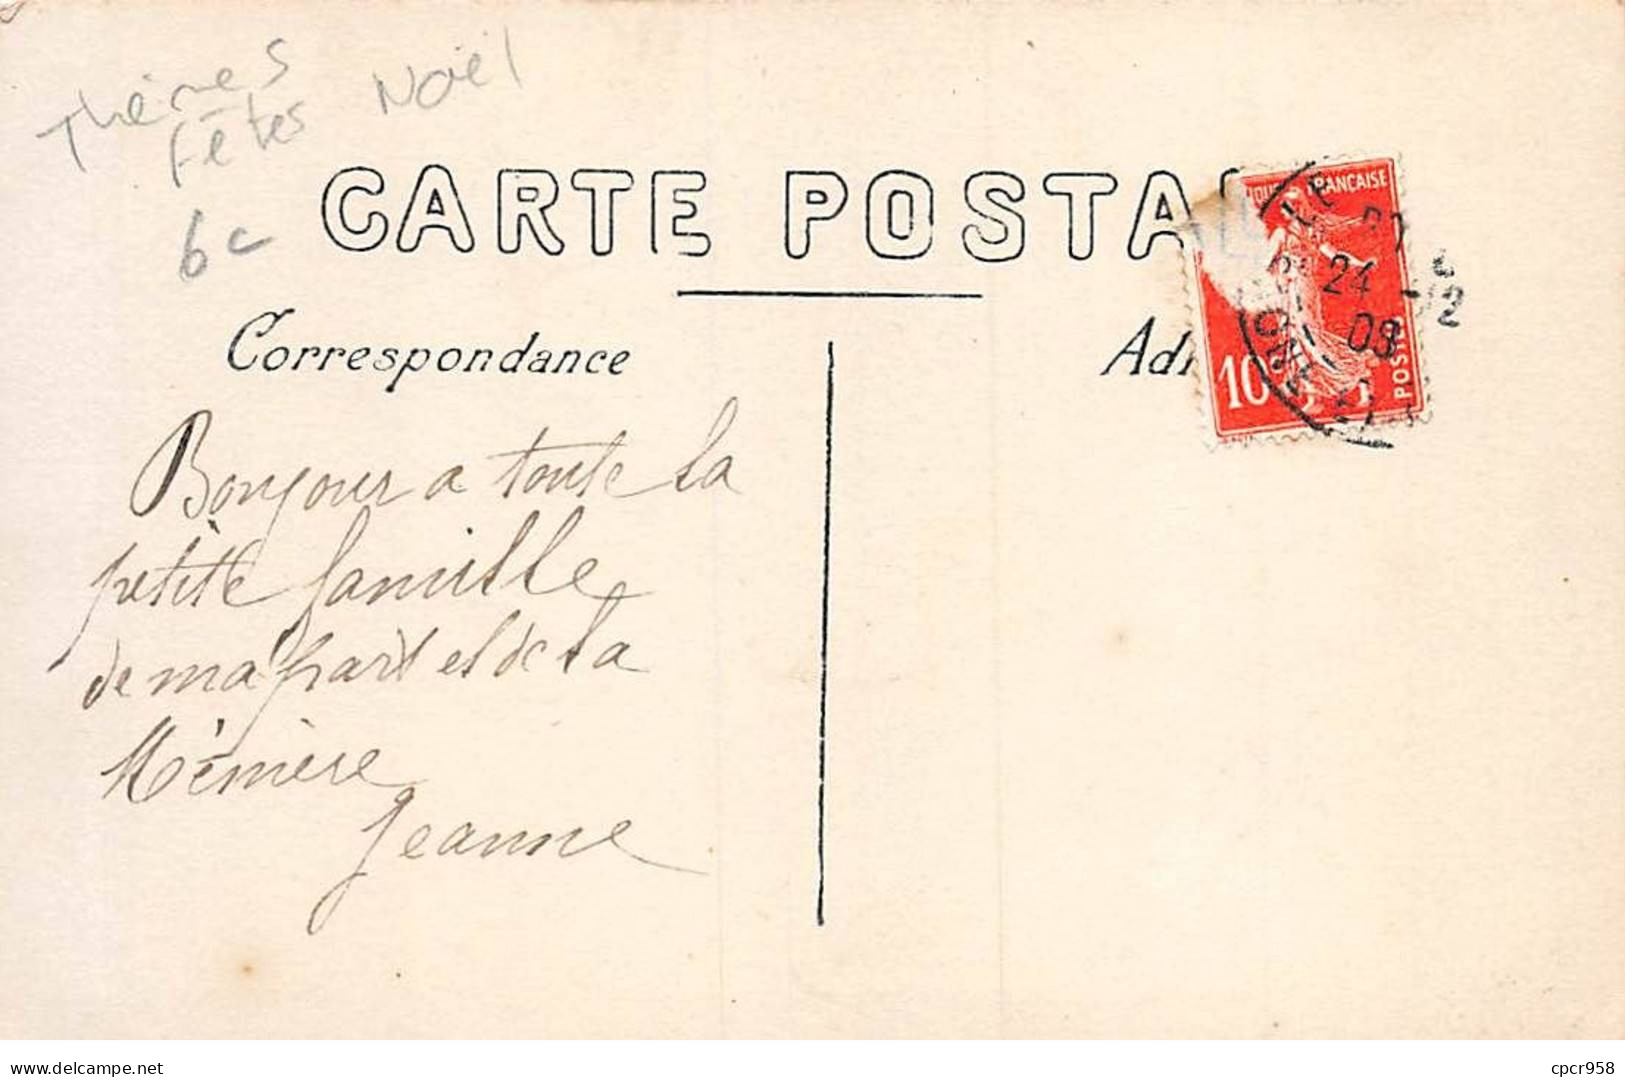 Thèmes
Fêtes Noël
6c
CARTE POSTAL
Correspondance
Adr
FRANÇAISE
24 -12
09
10
POSTES
Bonjour a toute la
petite famille
de ma part et de la
Mémère
Jeanne
delcampe.net
cpcr958